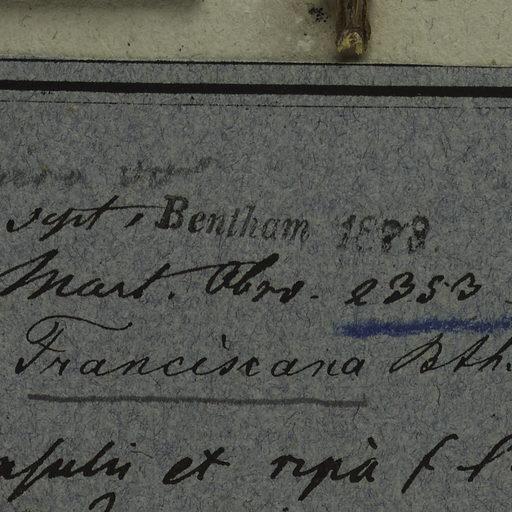 sept. Bentham 1889.
Mart. Obsv. 2353
Franciscana Bth.
et ripâ f